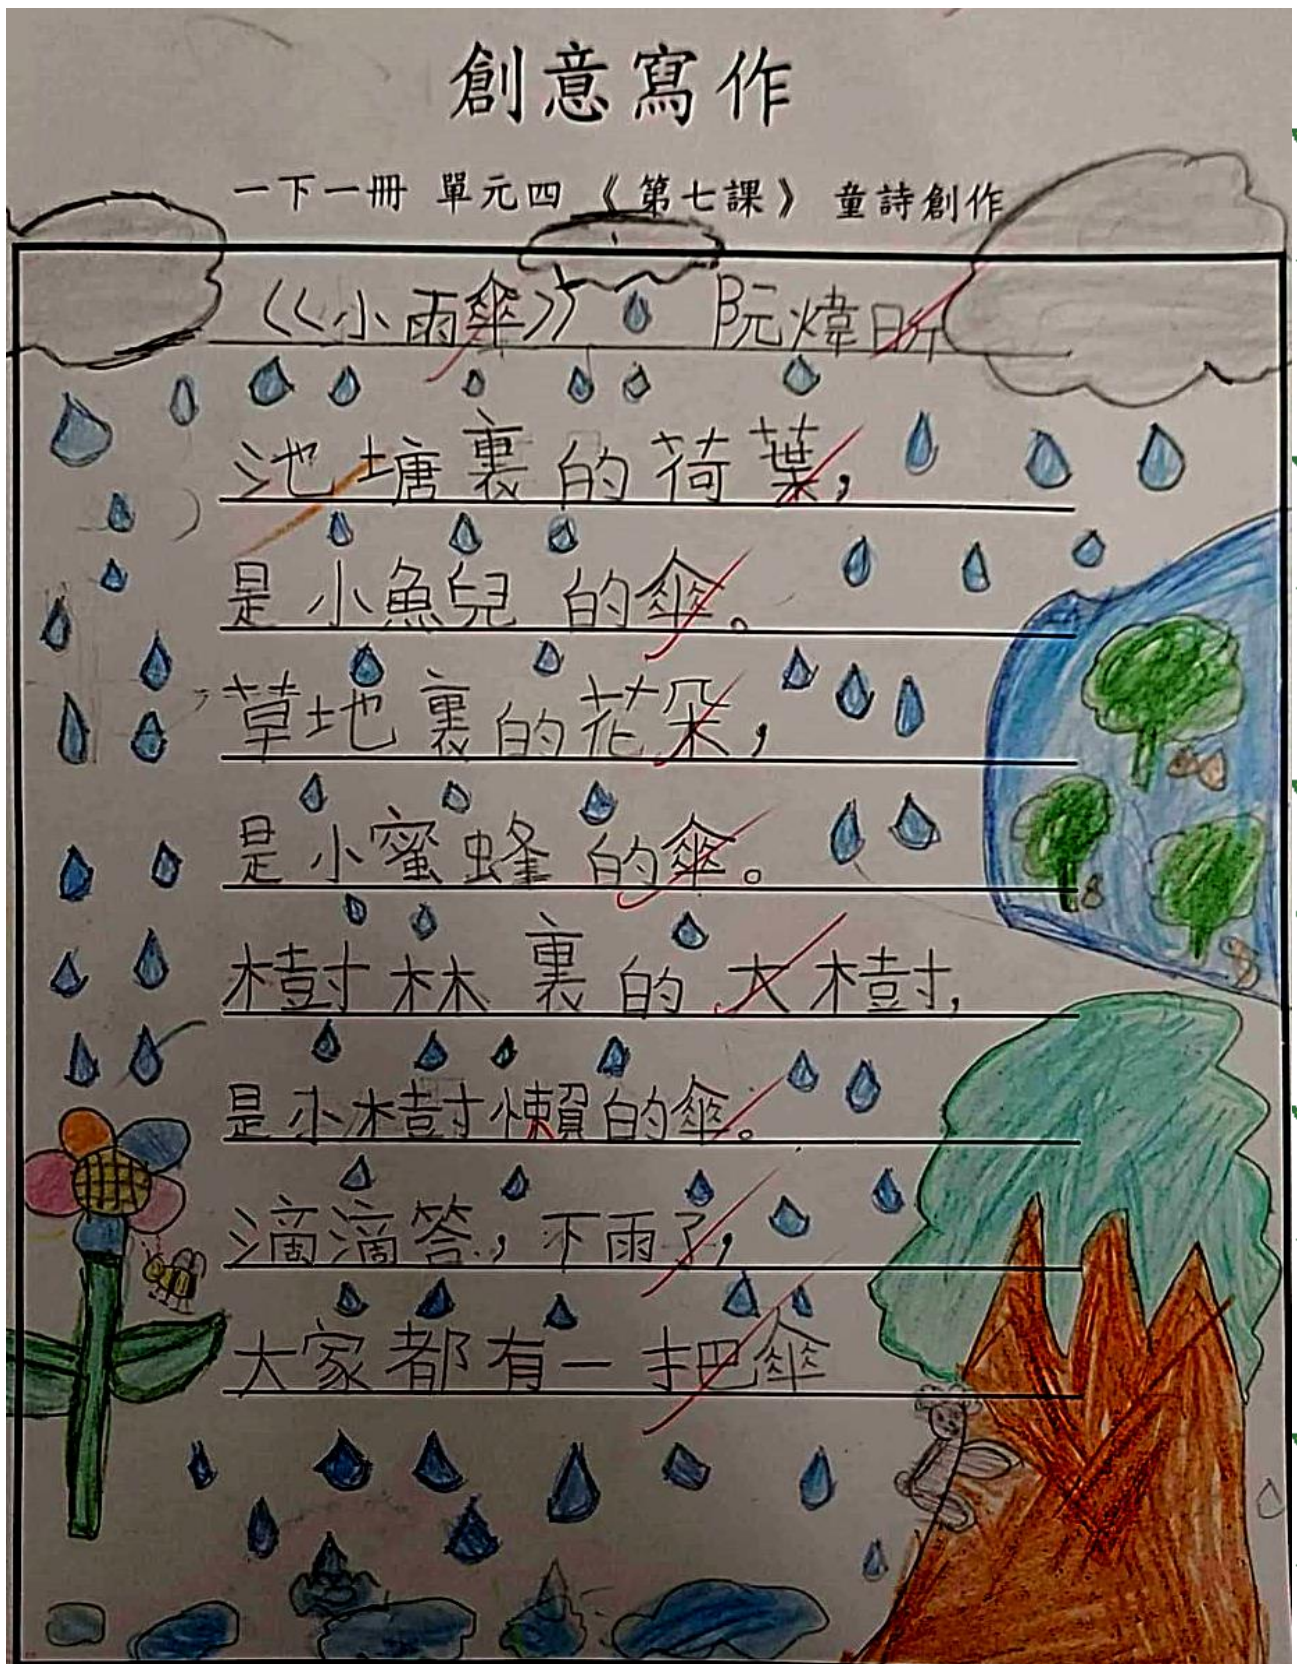 創意寫作
一下一冊 單元四 《第七課》 童詩創作
《小雨傘》 阮煒昕
池塘裏的荷葉,
是小魚兒的傘。
草地裏的花朵,
是小蜜蜂的傘。
樹林裏的大樹,
是小樹懶的傘。
滴滴答,下雨了,
大家都有一把傘